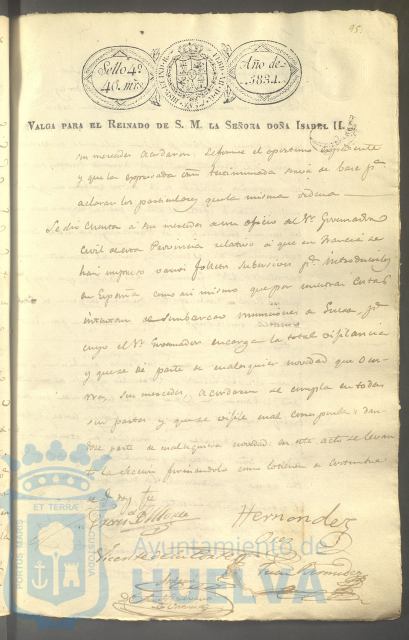 95.
Sello 4º
40. mrs.
HISPANIARUM
Año de
1834.
VALGA PARA EL REINADO DE S. M. LA SEÑORA DOÑA ISABEL II.
sus mercedes acordaron se forme el oportuno expediente
y que la expresada sirva de base pª
aclarar los particulares que la misma ordena
Se dio cuenta a sus mercedes de un oficio del Sr Governador
Civil de esta Provincia relativo a que en Francia se
han impreso varios folletos subersivos pª introducirlos
en España como asi mismo que por nuestras costas
intentan desembarcar municiones de Guerra, pr
cuyo el Sr Governador encarga la total vigilancia
y que se dé parte de cualesquier novedad que ocur-
rra, sus mercedes, acordaron se cumpla en todas
sus partes y que se vigile cual corresponde, dan-
dose parte de cualesquiera novedad: en este acto se levan-
to la Sesion firmandolo como lo tienen de costumbre
de q. doy fe
Hernandez
PORTUS MARIS
ET TERRÆ
CUSTODIA
Ayuntamiento de
HUELVA